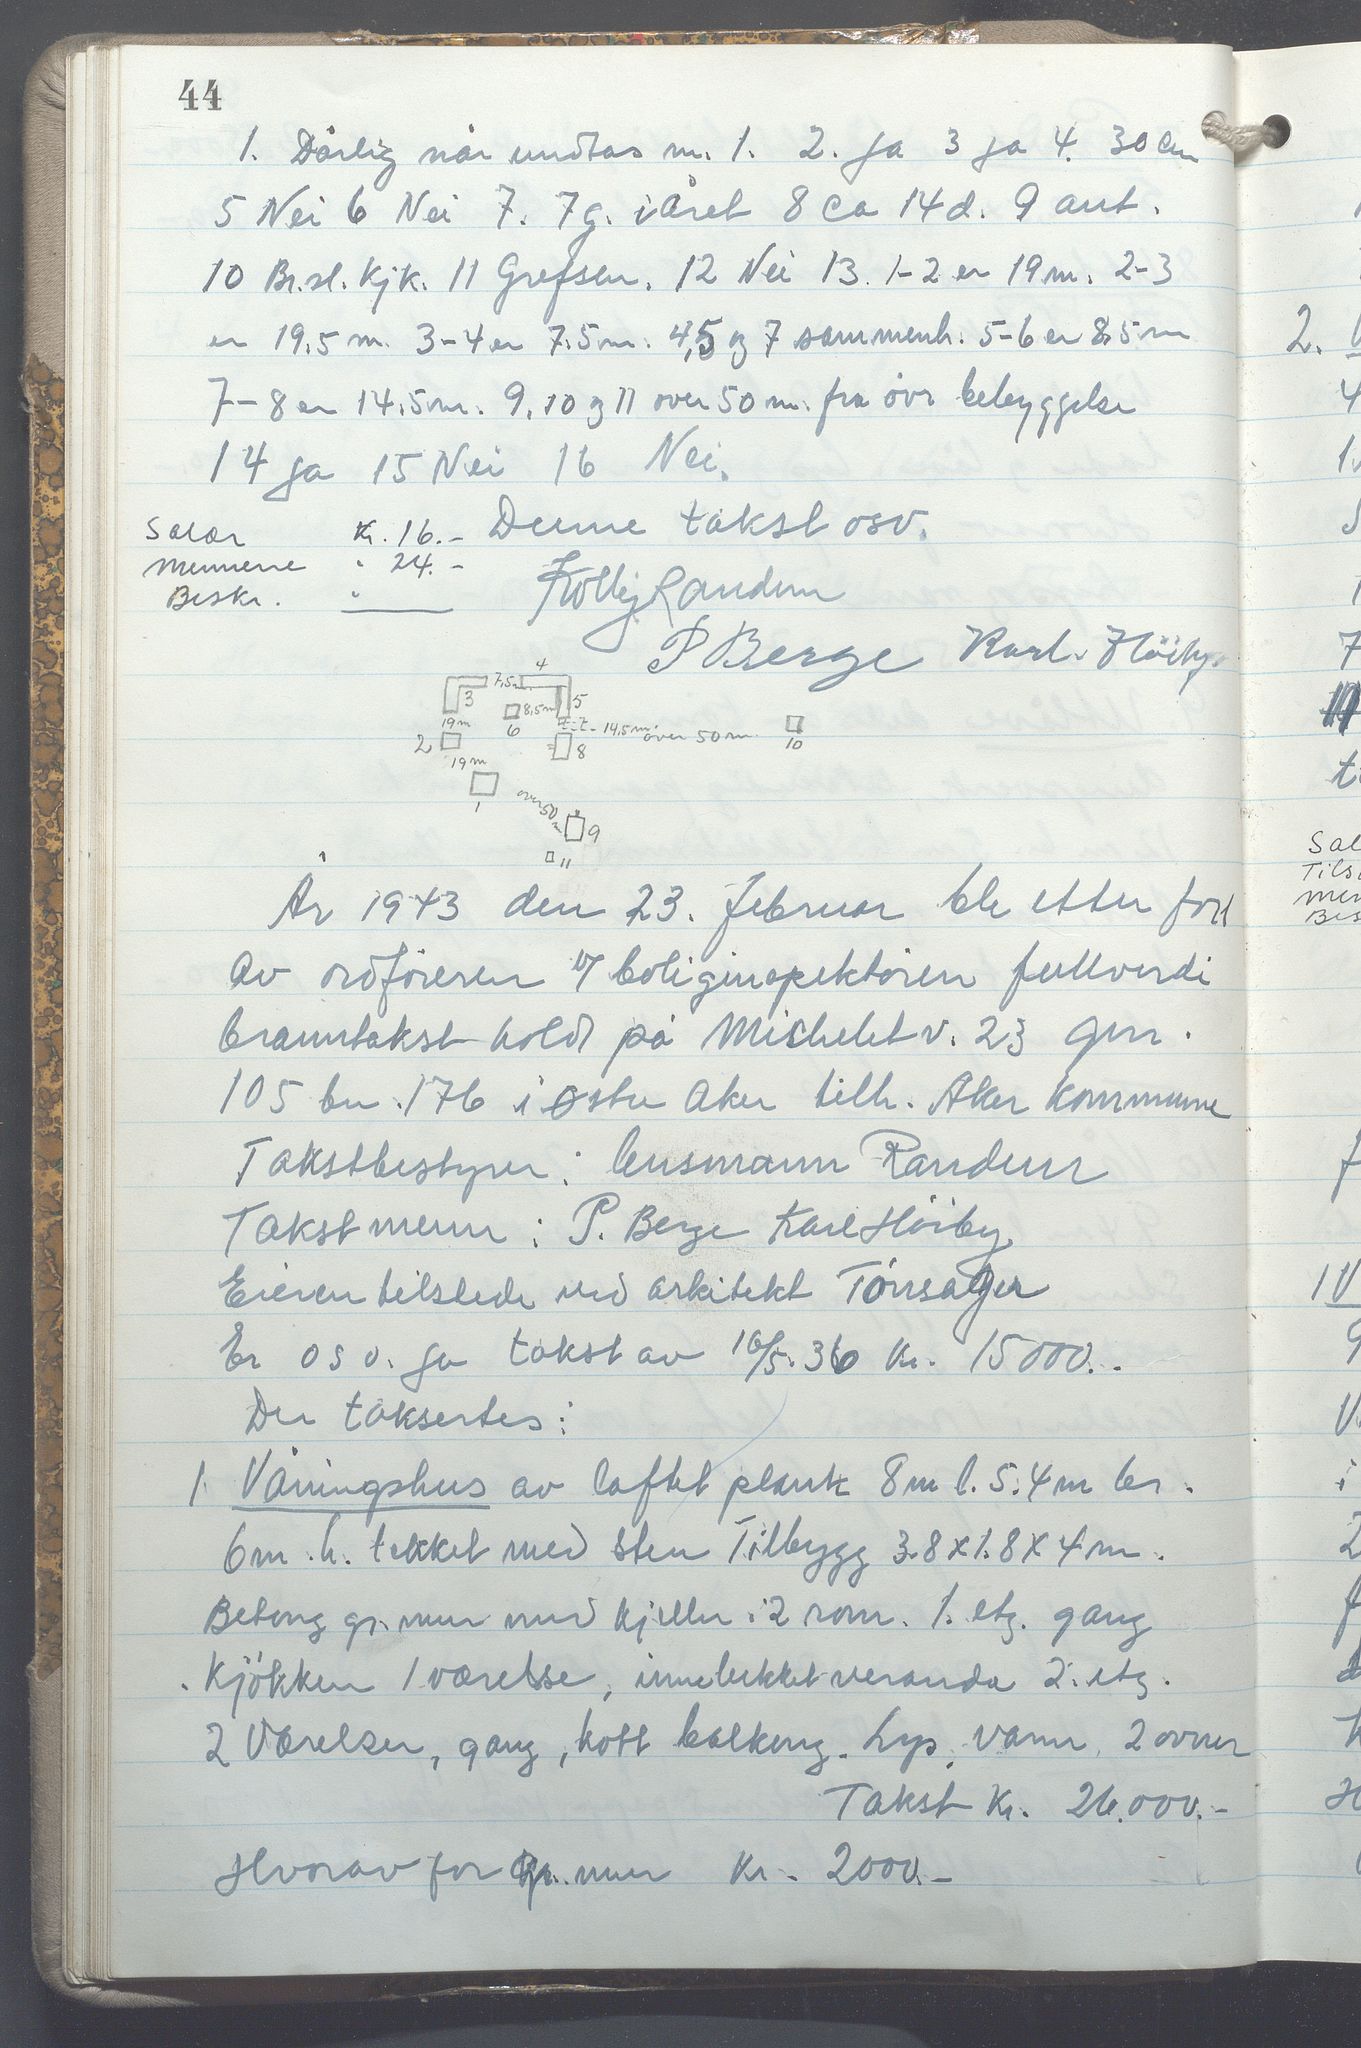 44
1. Dårlig når undtas nr. 1. 2. ja 3 ja 4. 30 cm
5 Nei 6 Nei 7. 7 g. i året 8 ca 14 d. 9 ant.
10 Br.sl. Kjk. 11 Grefsen. 12 Nei 13. 1-2 er 19 m. 2-3
er 19,5 m. 3-4 er 7.5 m. 4,5 og 7 sammenh. 5-6 er 8,5 m
7-8 er 14,5 m. 9, 10 og 11 over 50 m. fra övr bebyggelse
14 ja 15 Nei 16 Nei.
Salær Kr. 16.- Denne takst osv.
mennene " 24.-
Beskr. "
Randem
P Berge Karl Höiby
4
7,5 m
3
8,5 m
5
19 m
6
14,5 m
over 50 m.
2
8
10
19 m
1
over 50 m
9
11
År 1943 den 23. februar ble etter forl
av ordföreren v/ boliginspektören fullverdi
branntakst hold på Michelet v. 23 gnr.
105 bn. 176 i Østre Aker tilh. Aker kommune
Takstbestyrer: lensmann Randem
Takstmenn: P. Berge Karl Höiby
Eieren tilstede ved arkitekt Tönsager
Er osv. ja takst av 16/5. 36 Kr. 15000.-
Der taksertes:
1. Våningshus av laftet plank 8 m l. 5.4 m br.
6 m. h. tekket med sten Tilbygg 3.8 x 1.8 x 4 m.
Betong gr. mur med kjeller i 2 rom. 1. etg. gang
kjökken 1 værelse, innelukket veranda 2. etg.
2 Værelser, gang, kott balkong. Lys, vann, 2 ovner
Takst Kr. 26.000.-
Hvorav for gr. mur Kr. 2000.-